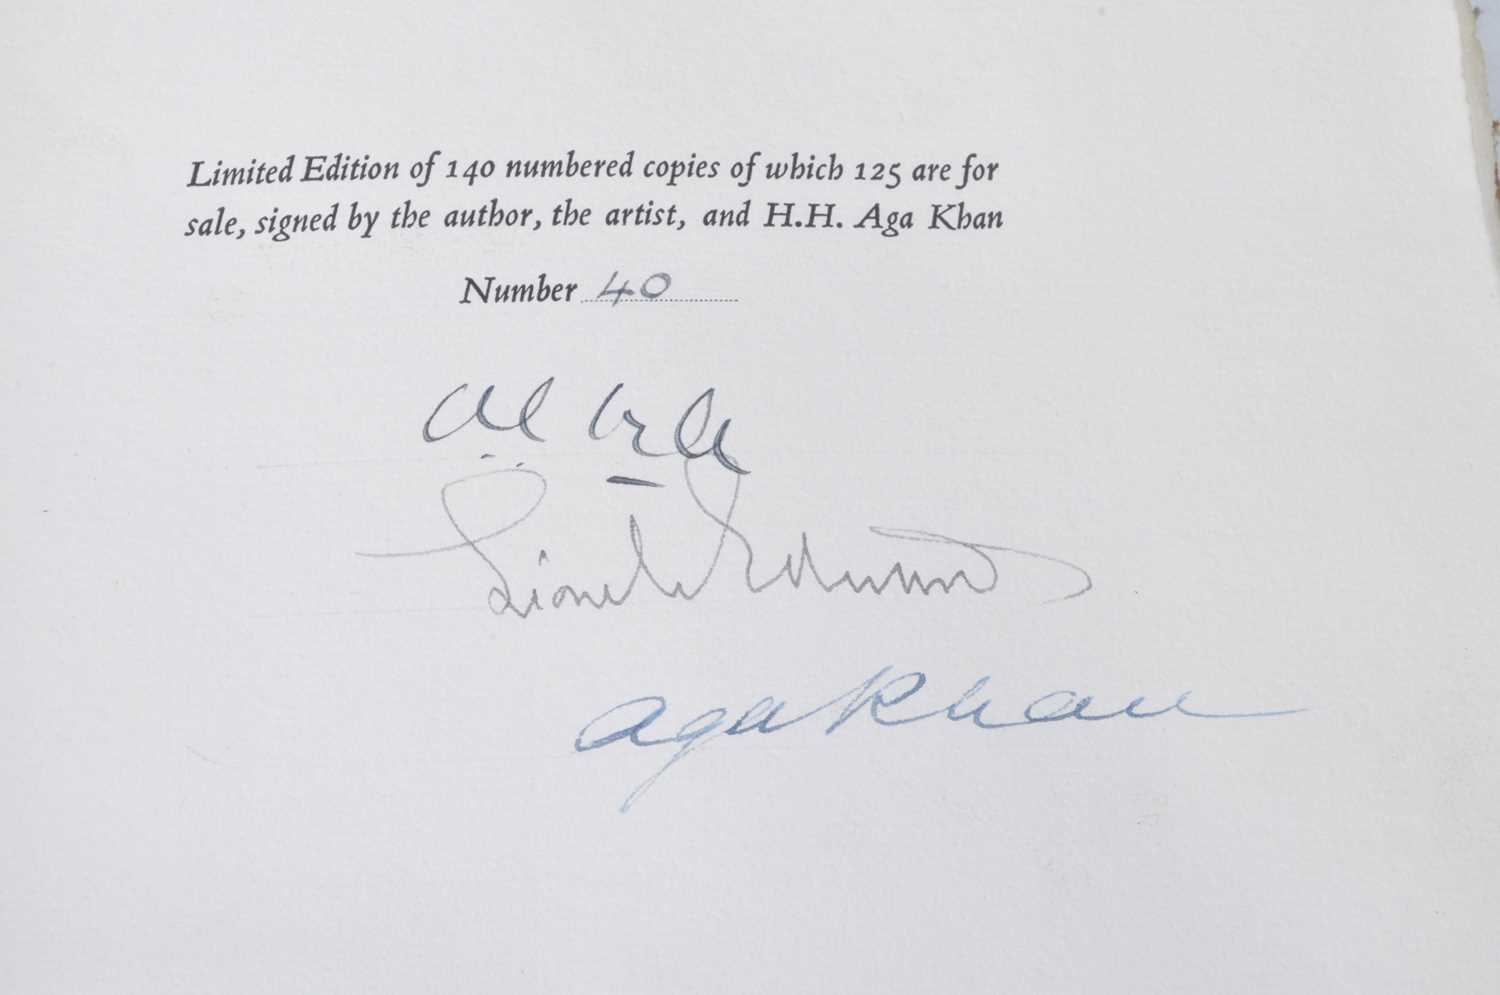 Limited Edition of 140 numbered copies of which 125 are for
sale, signed by the author, the artist, and H.H. Aga Khan
Number 40
Lionel Edwards
Aga Khan